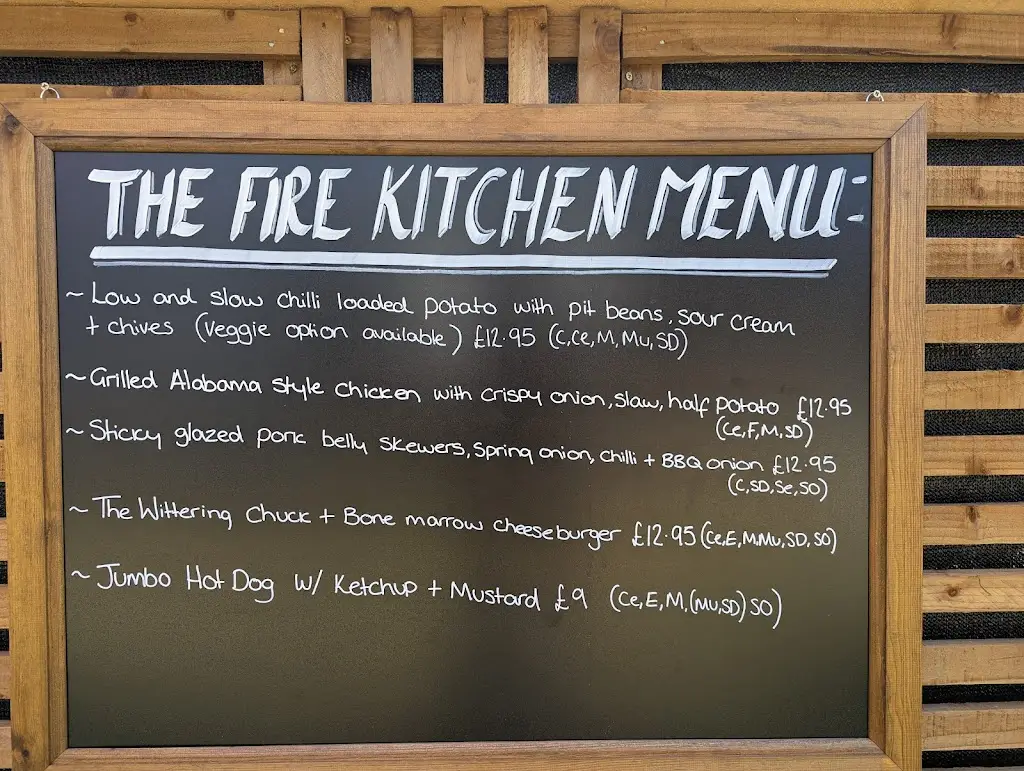 THE FIRE KITCHEN MENU:
~ Low and slow chilli loaded potato with pit beans, sour cream
+ chives (veggie option available) £12.95 (C,Ce,M,Mu,SD)
~ Grilled Alabama style chicken with crispy onion, slaw, half potato £12.95
(Ce,F,M,SD)
~ Sticky glazed pork belly skewers, Spring onion, chilli + BBQ onion £12.95
(C,SD,Se,SO)
~ The Wittering Chuck + Bone marrow cheeseburger £12.95 (Ce,E,M,Mu,SD,SO)
~ Jumbo Hot Dog w/ Ketchup + Mustard £9 (Ce,E,M,(Mu,SD) SO)